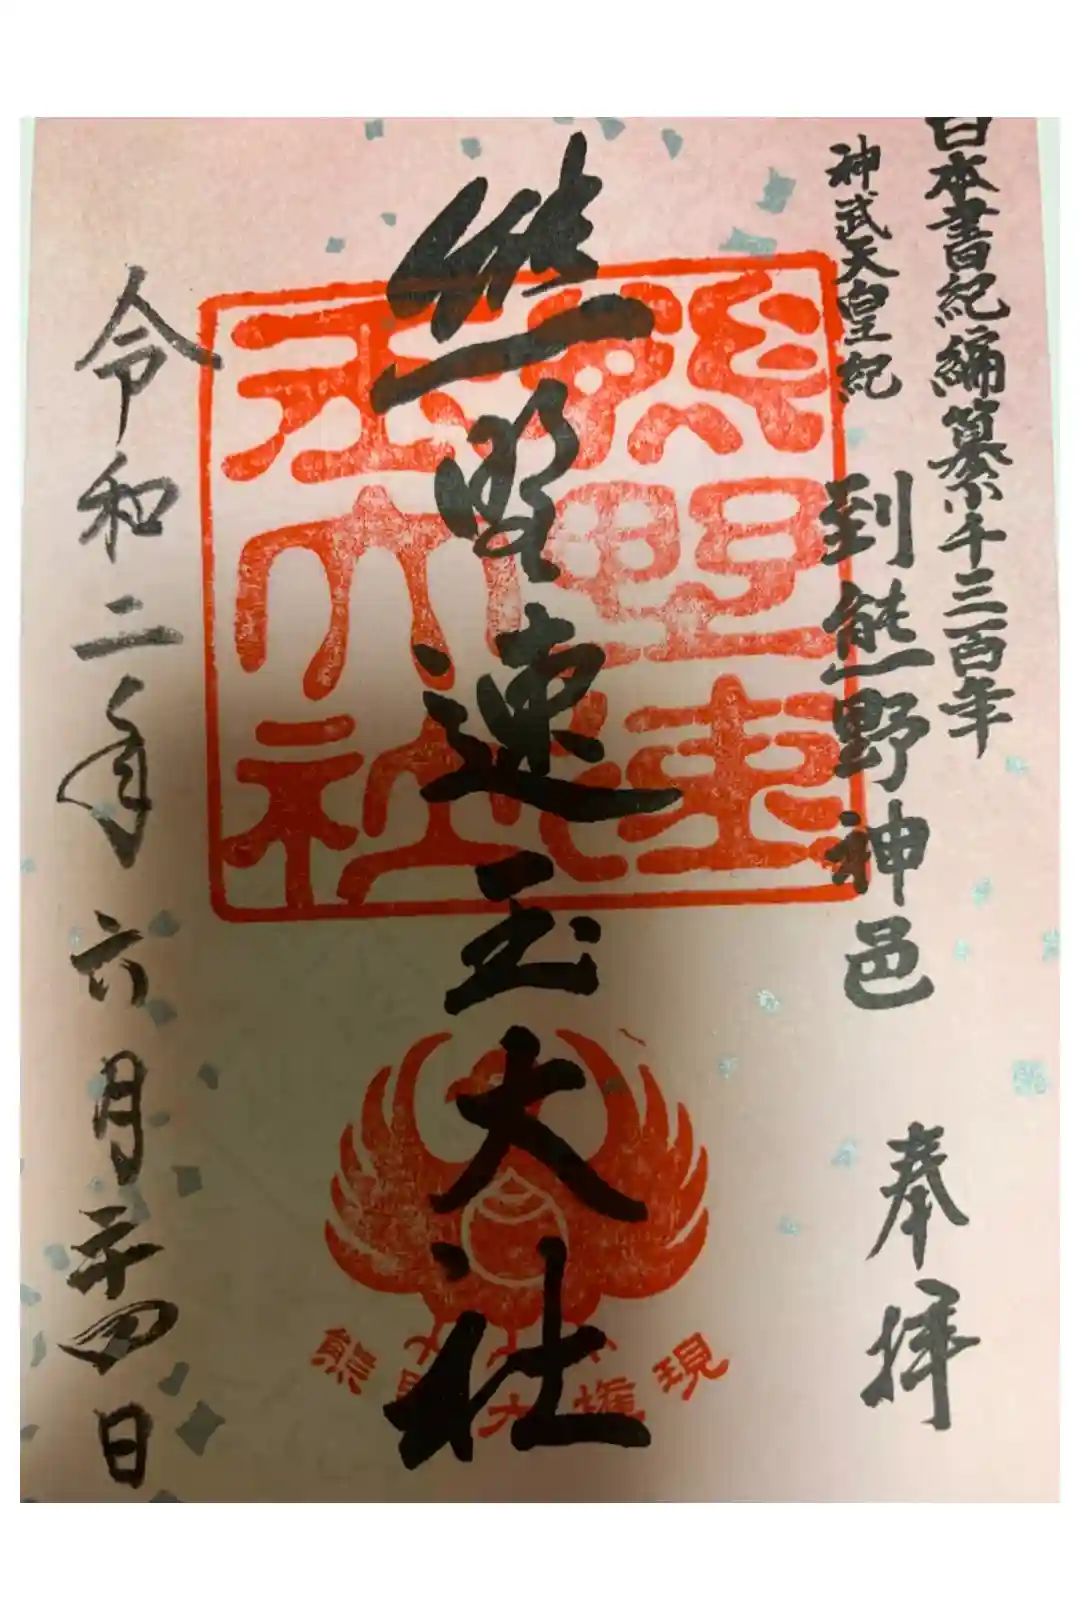 日本書紀編纂千三百年
神武天皇紀
到熊野神邑
奉拝
熊野速玉大社
熊野速玉大社
熊野大権現
令和二年六月二十四日